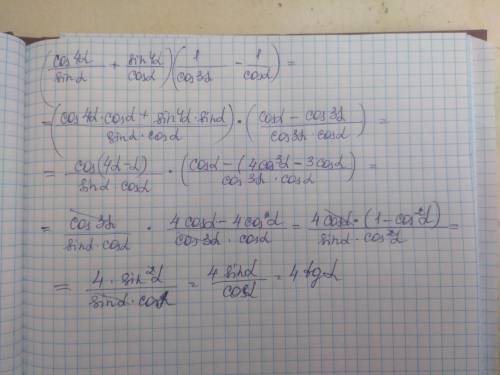 (cos4α/sinα + sin4α/cosα)(1/cos3α - 1/cosα) =
= (cos4α·cosα + sin4α·sinα / sinα·cosα) · (cosα - cos3α / cos3α·cosα) =
= cos(4α-α) / sinα cosα · (cosα - (4cos³α - 3cosα) / cos3α·cosα) =
= cos3α / sinα·cosα · 4cosα - 4cos³α / cos3α·cosα = 4cosα·(1-cos²α) / sinα·cos²α =
= 4·sin²α / sinα·cosα = 4sinα / cosα = 4tgα